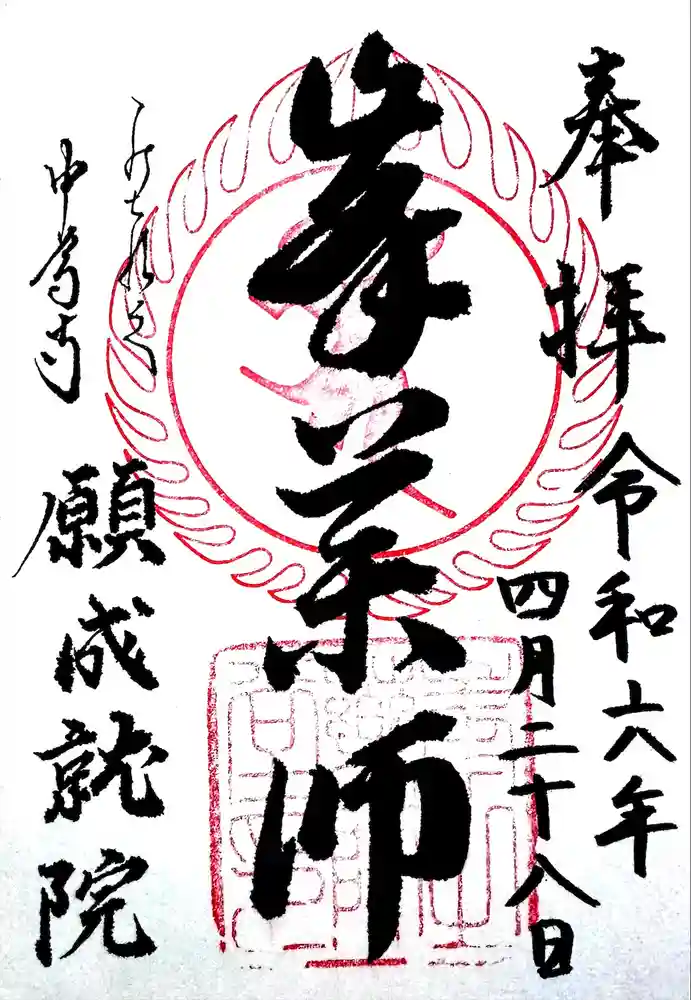 奉拝 令和六年
四月二十八日
峯薬師
中尊寺 願成就院